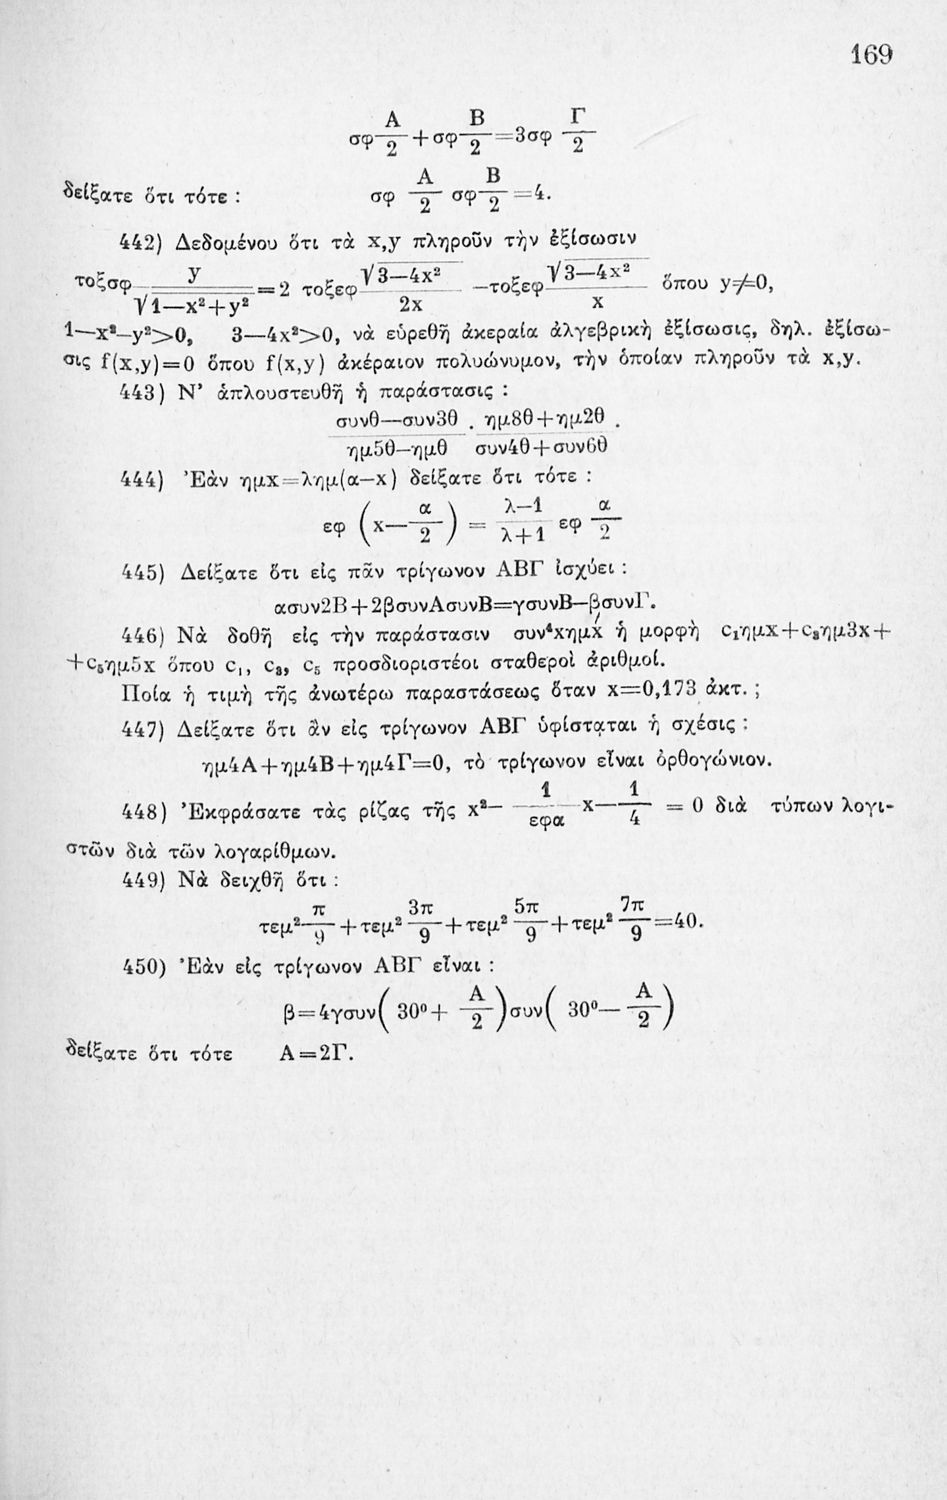 169
σφ A/2 + σφ B/2 = 3σφ Γ/2
δείξατε ὅτι τότε : σφ A/2 σφ B/2 = 4.
442) Δεδομένου ὅτι τὰ x,y πληροῦν τὴν ἐξίσωσιν
τοξσφ y/√1—x²+y² = 2 τοξεφ √3—4x²/2x —τοξεφ √3—4x²/x ὅπου y≠0,
1—x²—y²>0, 3—4x²>0, νὰ εὑρεθῆ ἀκεραία ἀλγεβρικὴ ἐξίσωσις, δηλ. ἐξίσω-
σις f(x,y)=0 ὅπου f(x,y) ἀκέραιον πολυώνυμον, τὴν ὁποίαν πληροῦν τὰ x,y.
443) Ν’ ἁπλουστευθῆ ἡ παράστασις :
συνθ—συν3θ/ημ5θ—ημθ . ημ8θ+ημ2θ/συν4θ+συν6θ .
444) Ἐὰν ημx=λημ(α—x) δείξατε ὅτι τότε :
εφ (x— α/2) = λ—1/λ+1 εφ α/2
445) Δείξατε ὅτι εἰς πᾶν τρίγωνον ΑΒΓ ἰσχύει :
ασυν2Β+2βσυνΑσυνΒ=γσυνΒ—βσυνΓ.
446) Νὰ δοθῆ εἰς τὴν παράστασιν συν⁴xημx ἡ μορφὴ c₁ημx+c₃ημ3x+
+c₅ημ5x ὅπου c₁, c₃, c₅ προσδιοριστέοι σταθεροὶ ἀριθμοί.
Ποία ἡ τιμὴ τῆς ἀνωτέρω παραστάσεως ὅταν x=0,173 ἀκτ. ;
447) Δείξατε ὅτι ἂν εἰς τρίγωνον ΑΒΓ ὑφίσταται ἡ σχέσις :
ημ4Α+ημ4Β+ημ4Γ=0, τὸ τρίγωνον εἶναι ὀρθογώνιον.
448) Ἐκφράσατε τὰς ρίζας τῆς x²— 1/εφα x— 1/4 = 0 διὰ τύπων λογι-
στῶν διὰ τῶν λογαρίθμων.
449) Νὰ δειχθῆ ὅτι :
τεμ² π/9 + τεμ² 3π/9 + τεμ² 5π/9 + τεμ² 7π/9 = 40.
450) Ἐὰν εἰς τρίγωνον ΑΒΓ εἶναι :
β=4γσυν( 30⁰+ A/2 )συν( 30⁰— A/2 )
δείξατε ὅτι τότε Α=2Γ.